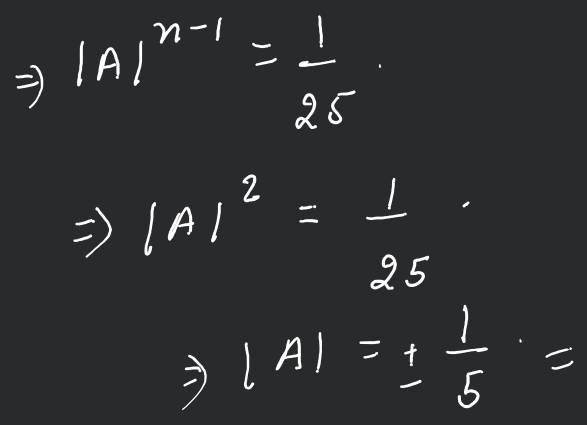 ⇒ |A|^{n-1} = 1/25.
⇒ |A|^2 = 1/25.
⇒ |A| = ± 1/5. =